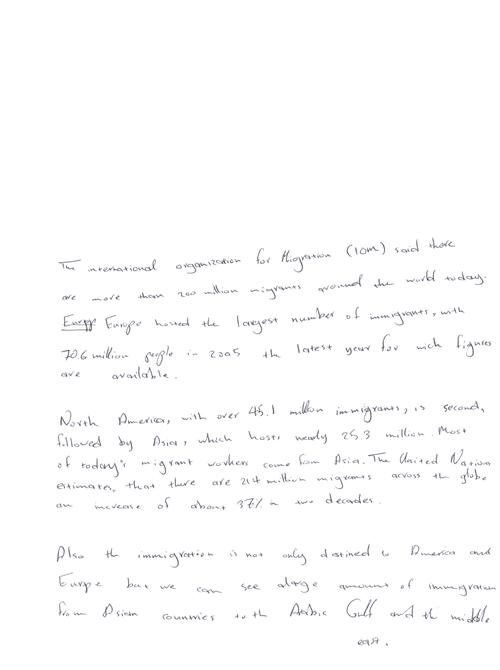 The international organization for Migration (IOM) said there
are more than 200 million migrants around the world today.
Europe hosted the largest number of immigrants, with
70.6 million people in 2005 the latest year for wich figures
are available.
North America, with over 45.1 million immigrants, is second,
followed by Asia, which hosts nearly 25.3 million. Most
of today's migrant workers come from Asia. The United Nation
estimates, that there are 214 million migrants across the globe
an increase of about 37% in two decades.
Also the immigration is not only destined to America and
Europe but we can see alarge amount of immigration
from Asian countries to th Arabic Gulf and th middle
east.